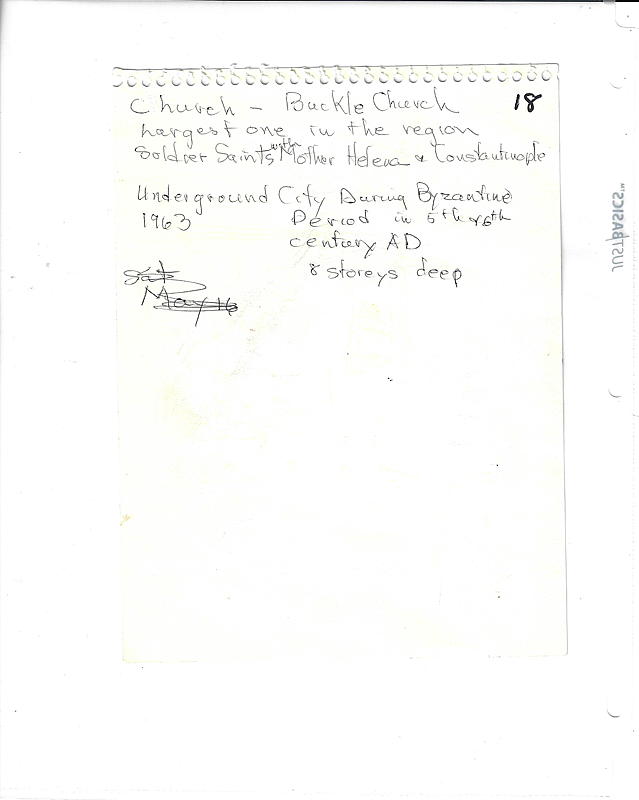 Church - Buckle Church 18
Largest one in the region
Soldier Saints with Mother Helena & Constantinople
Underground City During Byzantine
1963 Period in 5th & 6th
century AD
8 storeys deep
Sat
May 16
JUST BASICS™